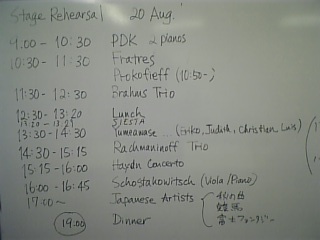 Stage Rehearsal 20 Aug.
9.00 - 10:30 PDK 2 pianos
10:30 - 11:30 Fratres
Prokofieff (10:50-)
11:30 - 12:30 Brahms Trio
12:30 - 13:20 Lunch
SIESTA
13:30 - 14:30 Yumeanase ... (Eriko, Judith, Christian, Luis)
14:30 - 15:15 Rachmaninoff Trio
15:15 - 16:00 Haydn Concerto
16:00 - 16:45 Schostakowitsch (Viola/Piano)
17:00 ~ Japanese Artists
19.00 Dinner